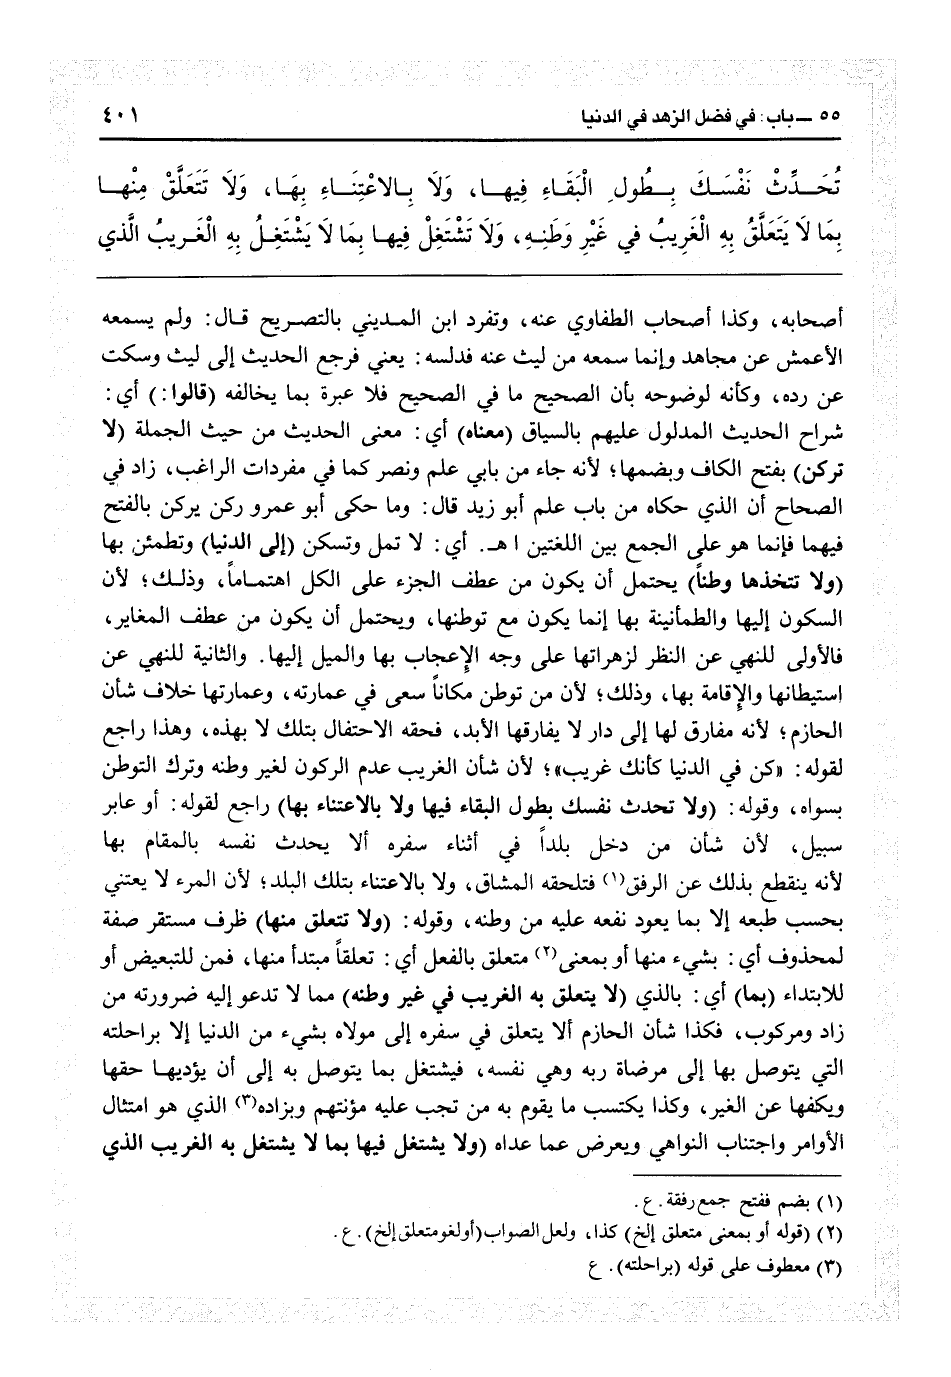 ٥٥ ــ باب: في فضل الزهد في الدنيا ٤٠١
تُحَــدِّثْ نَفْسَــكَ بِــطُولِ الْبَقَــاءِ فِيهَــا، وَلَا بِــالاعْتِنَــاءِ بِهَــا، وَلَا تَتَعَلَّقْ مِنْهَــا
بِمَا لَا يَتَعَلَّقُ بِهِ الْغَرِيبُ في غَيْرِ وَطَنِهِ، وَلَا تَشْتَغِلْ فِيهَــا بِمَا لَا يَشْتَغِــلُ بِهِ الْغَــرِيبُ الَّذي
أصحابه، وكذا أصحاب الطفاوي عنه، وتفرد ابن المديني بالتصريح قال: ولم يسمعه
الأعمش عن مجاهد وإنما سمعه من ليث عنه فدلسه: يعني فرجع الحديث إلى ليث وسكت
عن رده، وكأنه لوضوحه بأن الصحيح ما في الصحيح فلا عبرة بما يخالفه (قالوا:) أي:
شراح الحديث المدلول عليهم بالسياق (معناه) أي: معنى الحديث من حيث الجملة (لا
تركن) بفتح الكاف وبضمها؛ لأنه جاء من بابي علم ونصر كما في مفردات الراغب، زاد في
الصحاح أن الذي حكاه من باب علم أبو زيد قال: وما حكى أبو عمرو ركن يركن بالفتح
فيهما فإنما هو على الجمع بين اللغتين اهـ. أي: لا تمل وتسكن (إلى الدنيا) وتطمئن بها
(ولا تتخذها وطناً) يحتمل أن يكون من عطف الجزء على الكل اهتماماً، وذلك؛ لأن
السكون إليها والطمأنينة بها إنما يكون مع توطنها، ويحتمل أن يكون من عطف المغاير،
فالأولى للنهي عن النظر لزهراتها على وجه الإعجاب بها والميل إليها. والثانية للنهي عن
استيطانها والإقامة بها، وذلك؛ لأن من توطن مكاناً سعى في عمارته، وعمارتها خلاف شأن
الحازم؛ لأنه مفارق لها إلى دار لا يفارقها الأبد، فحقه الاحتفال بتلك لا بهذه، وهذا راجع
لقوله: «كن في الدنيا كأنك غريب»؛ لأن شأن الغريب عدم الركون لغير وطنه وترك التوطن
بسواه، وقوله: (ولا تحدث نفسك بطول البقاء فيها ولا بالاعتناء بها) راجع لقوله: أو عابر
سبيل، لأن شأن من دخل بلداً في أثناء سفره ألا يحدث نفسه بالمقام بها
لأنه ينقطع بذلك عن الرفق(١) فتلحقه المشاق، ولا بالاعتناء بتلك البلد؛ لأن المرء لا يعتني
بحسب طبعه إلا بما يعود نفعه عليه من وطنه، وقوله: (ولا تتعلق منها) ظرف مستقر صفة
لمحذوف أي: بشيء منها أو بمعنى(٢) متعلق بالفعل أي: تعلقاً مبتدأ منها، فمن للتبعيض أو
للابتداء (بما) أي: بالذي (لا يتعلق به الغريب في غير وطنه) مما لا تدعو إليه ضرورته من
زاد ومركوب، فكذا شأن الحازم ألا يتعلق في سفره إلى مولاه بشيء من الدنيا إلا براحلته
التي يتوصل بها إلى مرضاة ربه وهي نفسه، فيشتغل بما يتوصل به إلى أن يؤديها حقها
ويكفها عن الغير، وكذا يكتسب ما يقوم به من تجب عليه مؤنتهم وبزاده(٣) الذي هو امتثال
الأوامر واجتناب النواهي ويعرض عما عداه (ولا يشتغل فيها بما لا يشتغل به الغريب الذي
(١) بضم ففتح جمع رفقة. ع.
(٢) (قوله أو بمعنى متعلق إلخ) كذا، ولعل الصواب (أولغو متعلق إلخ). ع.
(٣) معطوف على قوله (براحلته). ع